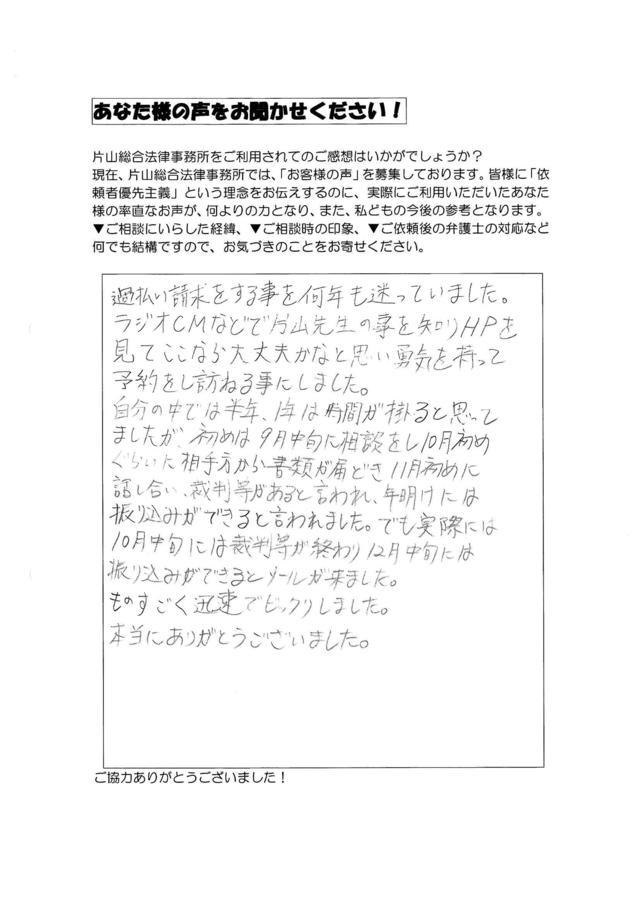 あなた様の声をお聞かせください！
片山総合法律事務所をご利用されてのご感想はいかがでしょうか？
現在、片山総合法律事務所では、「お客様の声」を募集しております。皆様に「依
頼者優先主義」という理念をお伝えするのに、実際にご利用いただいたあなた
様の率直なお声が、何よりの力となり、また、私どもの今後の参考となります。
▼ご相談にいらした経緯、▼ご相談時の印象、▼ご依頼後の弁護士の対応など
何でも結構ですので、お気づきのことをお寄せください。
過払い請求をする事を何年も迷っていました。
ラジオCMなどで片山先生の事を知りHPを
見てここなら大丈夫かなと思い勇気を持って
予約をし訪ねる事にしました。
自分の中では半年、1年は時間が掛ると思って
ましたが、初めは9月中旬に相談をし10月初め
ぐらいに相手方から書類が届どき11月初めに
話し合い、裁判等があると言われ、年明けには
振り込みができると言われました。でも実際には
10月中旬には裁判等が終わり12月中旬には
振り込みができるとメールが来ました。
ものすごく迅速でビックリしました。
本当にありがとうございました。
ご協力ありがとうございました！